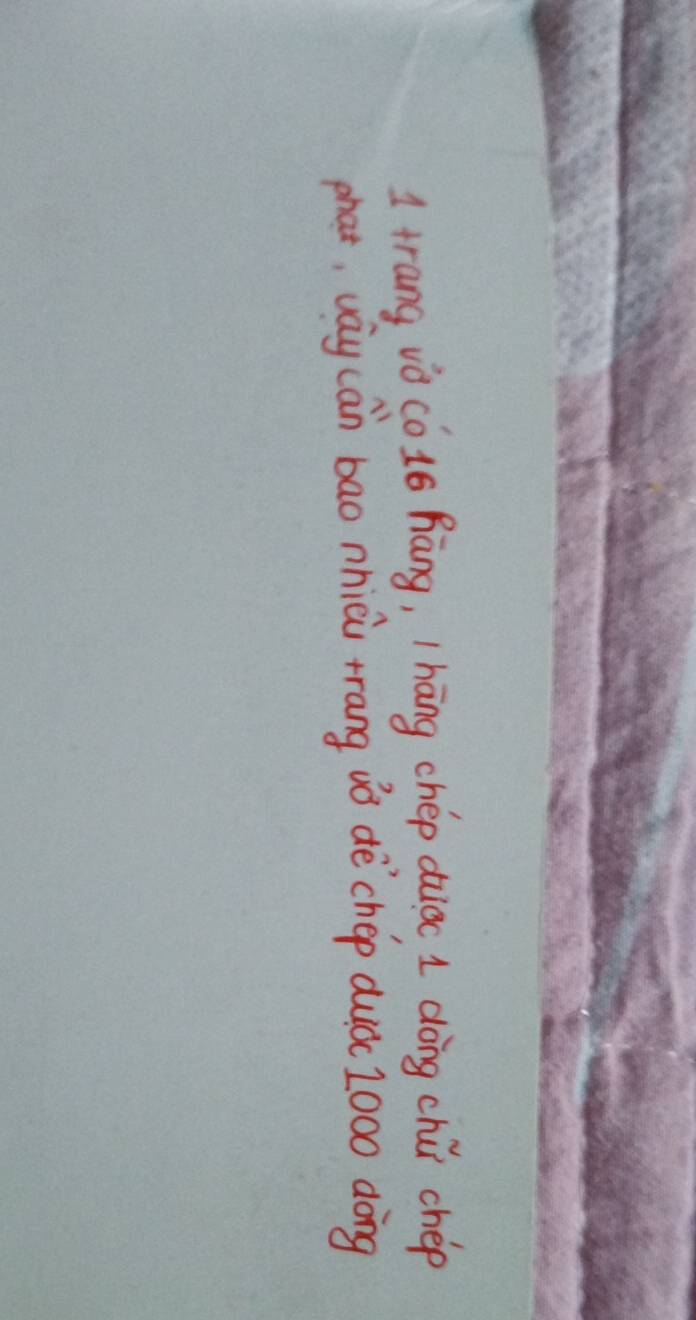 1 trang vở có 16 hàng, 1 hàng chép được 1 dòng chữ chép
phạt, vậy cần bao nhiêu trang vở để chép được 1000 dòng